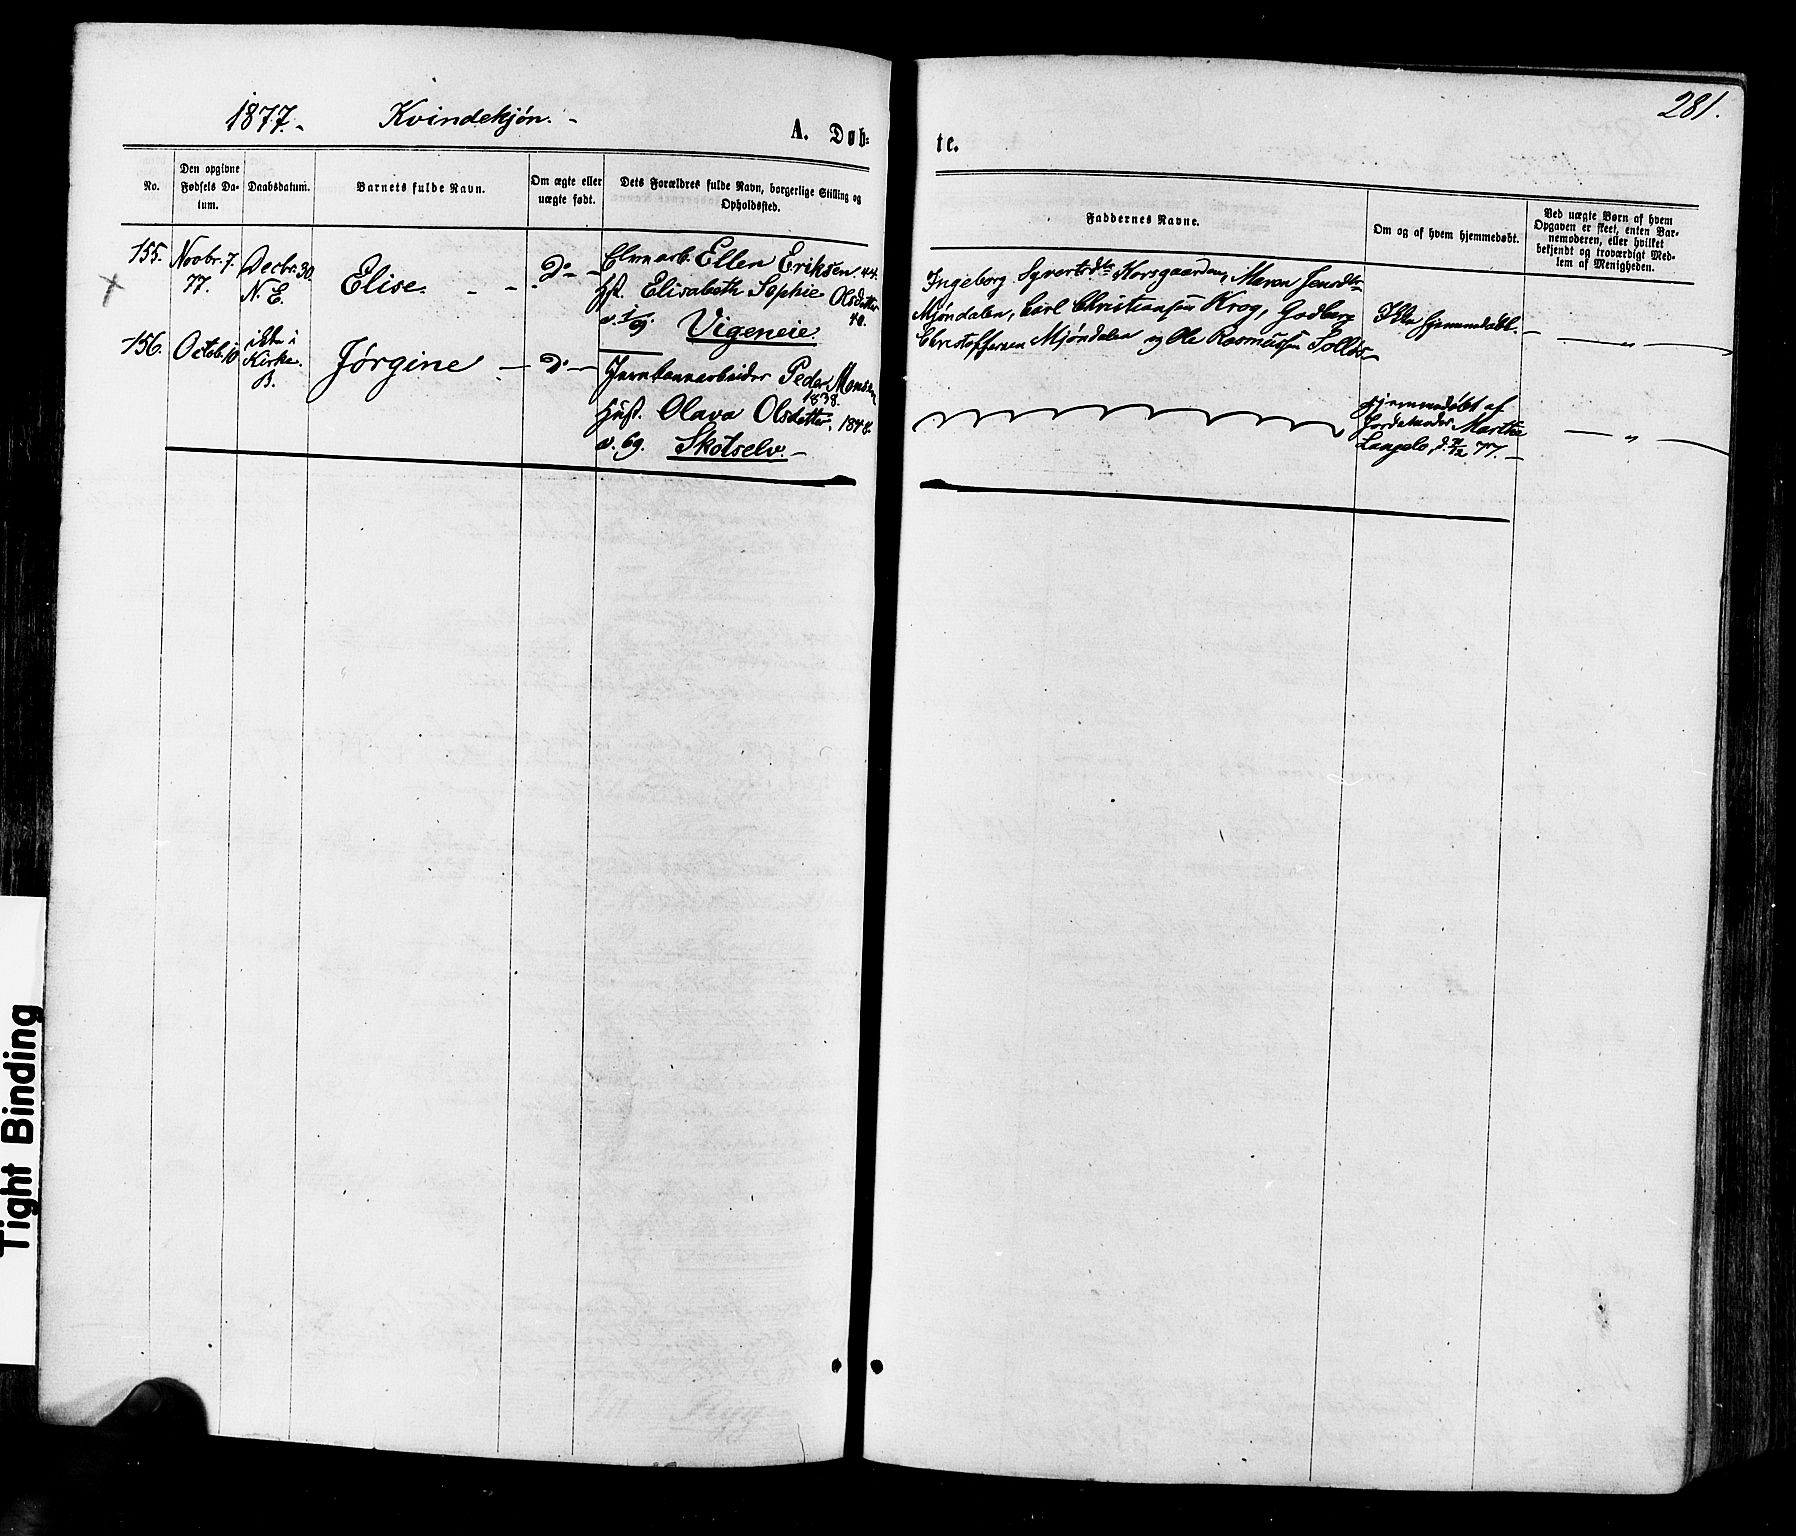 1877.- Kvindekjøn.-
A. Døb-
te.
281.
No.
Den opgivne
Fødsels Da-
tum.
Daabsdatum.
Barnets fulde Navn.
Om ægte eller
uægte født.
Dets Forældres fulde Navn, borgerlige Stilling og
Opholdssted.
Faddernes Navne.
Om og af hvem hjemmedøbt.
Ved uægte Børn af hvem
Opgaven er skeet, enten Bar-
nemoderen, eller hvilket
bekjendt og troværdigt Med-
lem af Menigheden.
155.
Novbr. 7.
77.
Decbr. 30
N. E.
Elise.
Do
Ellen Eriksen 44.
Hst. Elisabeth Sophie Olsdatter
40.
v. 1/9. Vigeneie.
Ingeborg Syvertsdtr Korsgaarden, Maren Jensdtr
Mjøndalen, Carl Christiansen Krog, Gudberg
Christoffersen Mjøndalen og Ole Rasmussen
Ikke hjemmedøbt.
156.
Octob. 10
ikke i
Kirke.
B.
Jørgine
Do
Jernbanearbeider Peder Monsen
1838.
Hust. Olava Olsdatter, 1848.
v. 69. Skotselv.-
Hjemmedøbt af
Jordemoder Marthe
Langelo, d. 7/12 77.-
Tight Binding